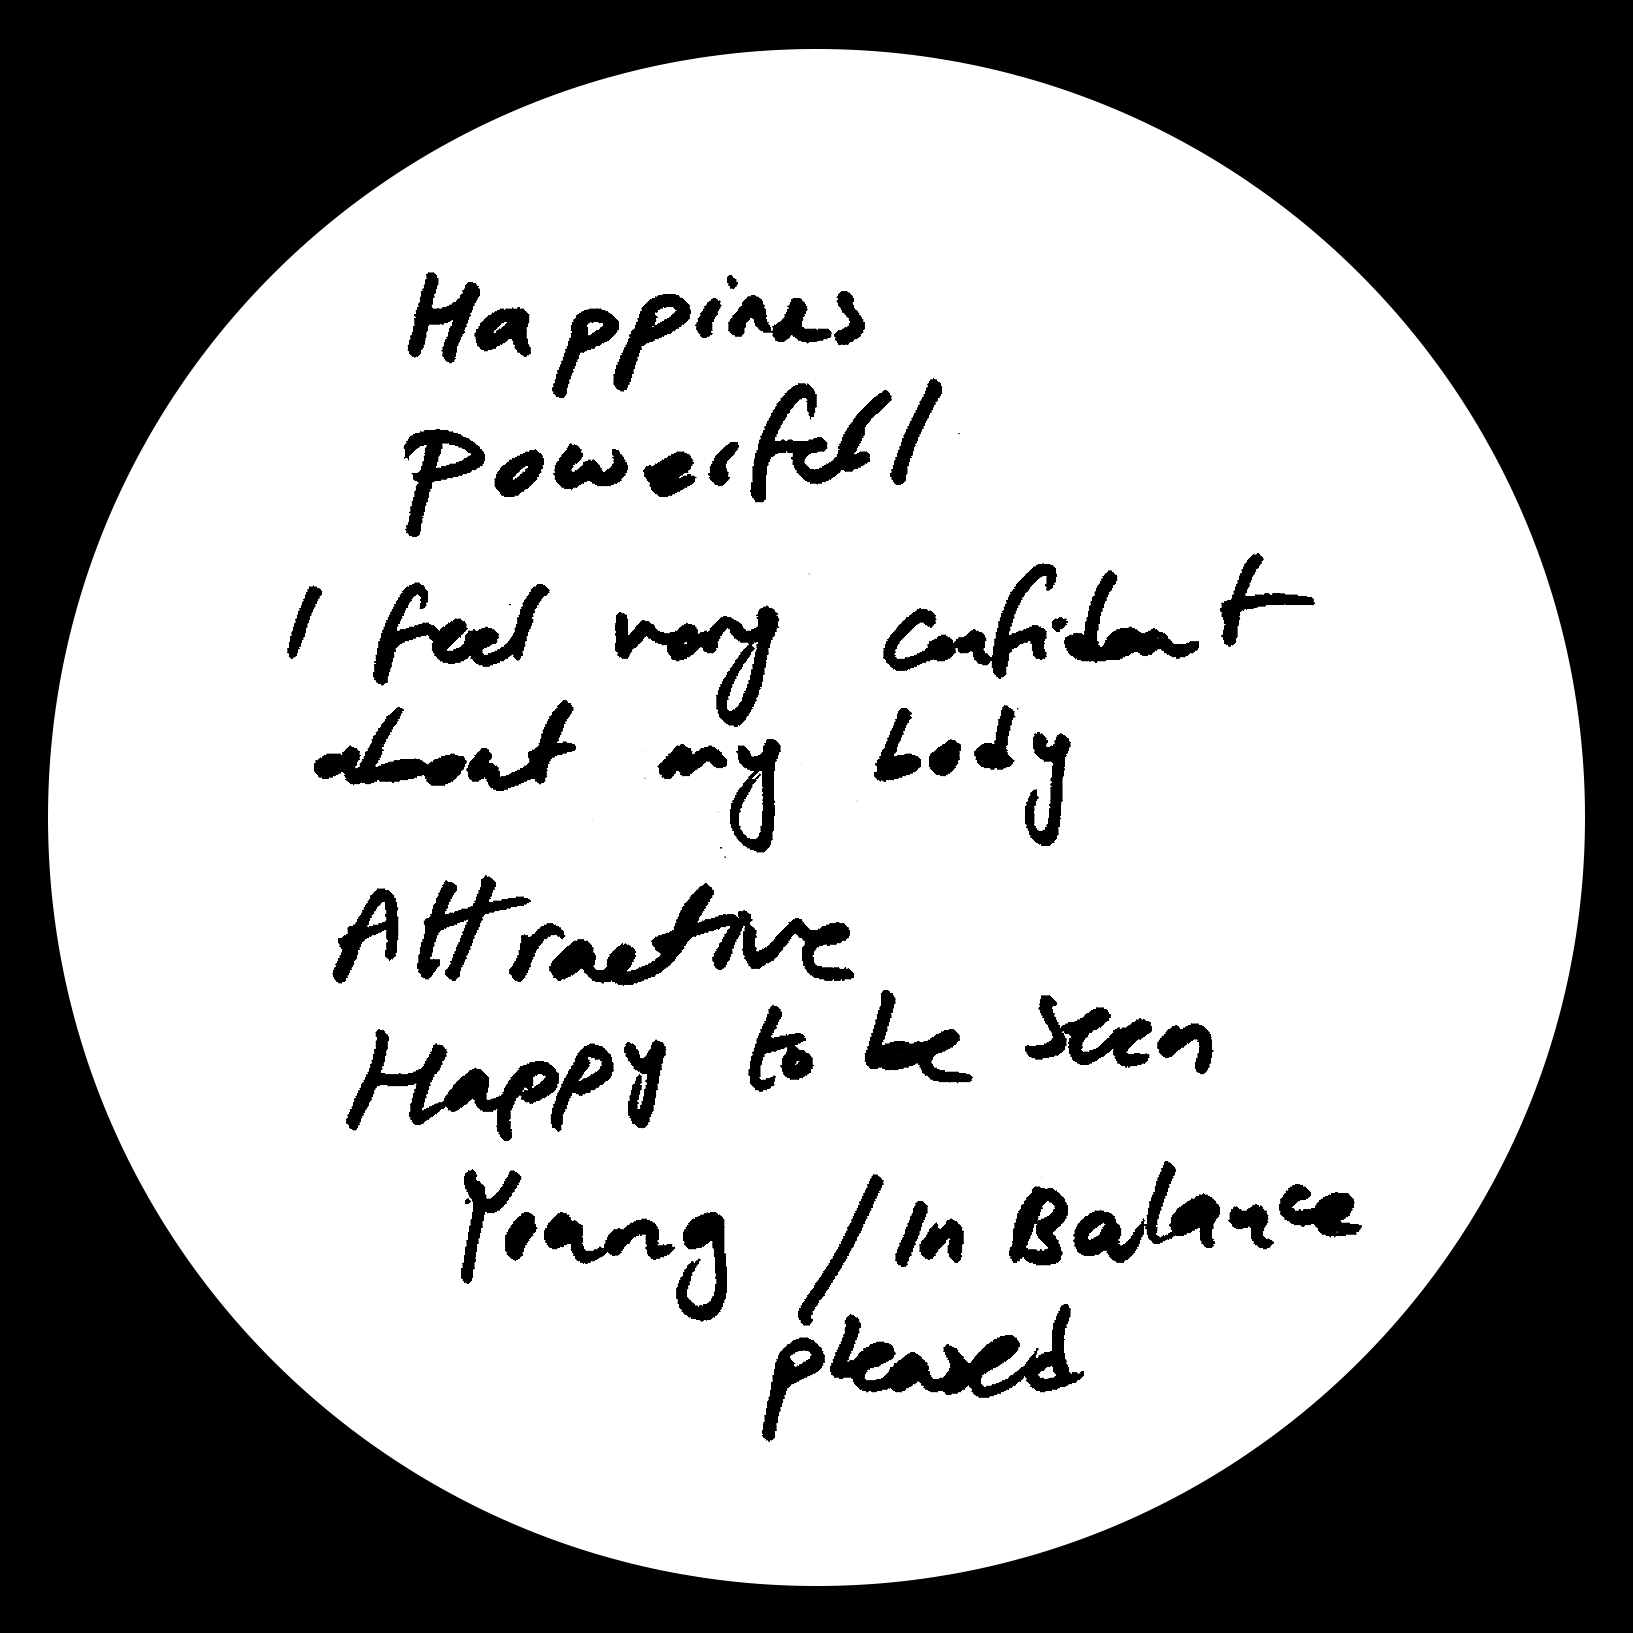 Happines
Powerfull
I feel very confident
about my body
Attractive
Happy to be seen
Young / In Balance
pleased